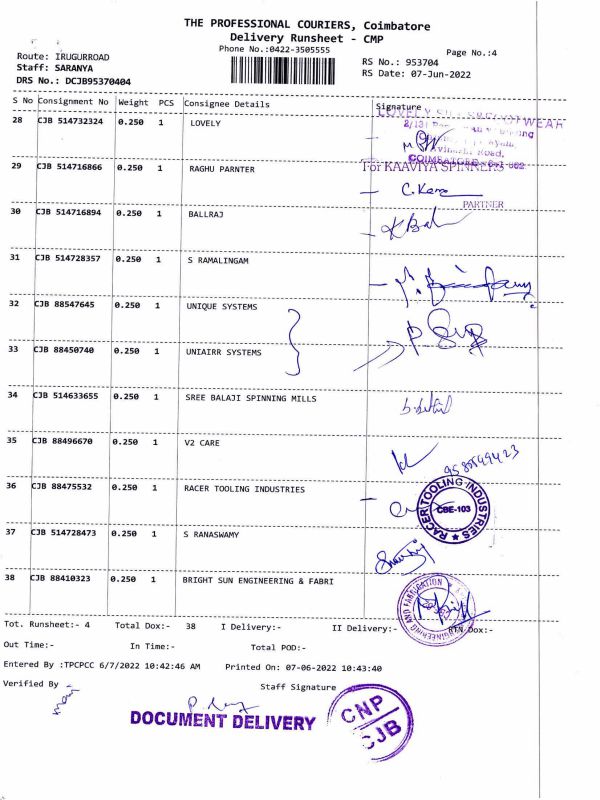 THE PROFESSIONAL COURIERS, Coimbatore
Delivery Runsheet - CMP
Phone No.:0422-3505555
Page No.:4
Route: IRUGURROAD
Staff: SARANYA
DRS No.: DCJB95370404
RS No.: 953704
RS Date: 07-Jun-2022
S No Consignment No Weight PCS Consignee Details Signature
28 CJB 514732324 0.250 1 LOVELY
LOVELY FOOTWEAR
COIMBATORE
29 CJB 514716866 0.250 1 RAGHU PARNTER
For KAAVIYA SPINNERS
PARTNER
30 CJB 514716894 0.250 1 BALLRAJ
31 CJB 514728357 0.250 1 S RAMALINGAM
32 CJB 88547645 0.250 1 UNIQUE SYSTEMS
33 CJB 88450740 0.250 1 UNIAIRR SYSTEMS
34 CJB 514633655 0.250 1 SREE BALAJI SPINNING MILLS
35 CJB 88496670 0.250 1 V2 CARE
36 CJB 88475532 0.250 1 RACER TOOLING INDUSTRIES
RACER TOOLING INDUSTRIES
CBE-103
37 CJB 514728473 0.250 1 S RANASWAMY
38 CJB 88410323 0.250 1 BRIGHT SUN ENGINEERING & FABRI
Tot. Runsheet:- 4 Total Dox:- 38 I Delivery:- II Delivery:- RTN Dox:-
Out Time:- In Time:- Total POD:-
Entered By :TPCPCC 6/7/2022 10:42:46 AM Printed On: 07-06-2022 10:43:40
Verified By Staff Signature
DOCUMENT DELIVERY
CNP
CJB